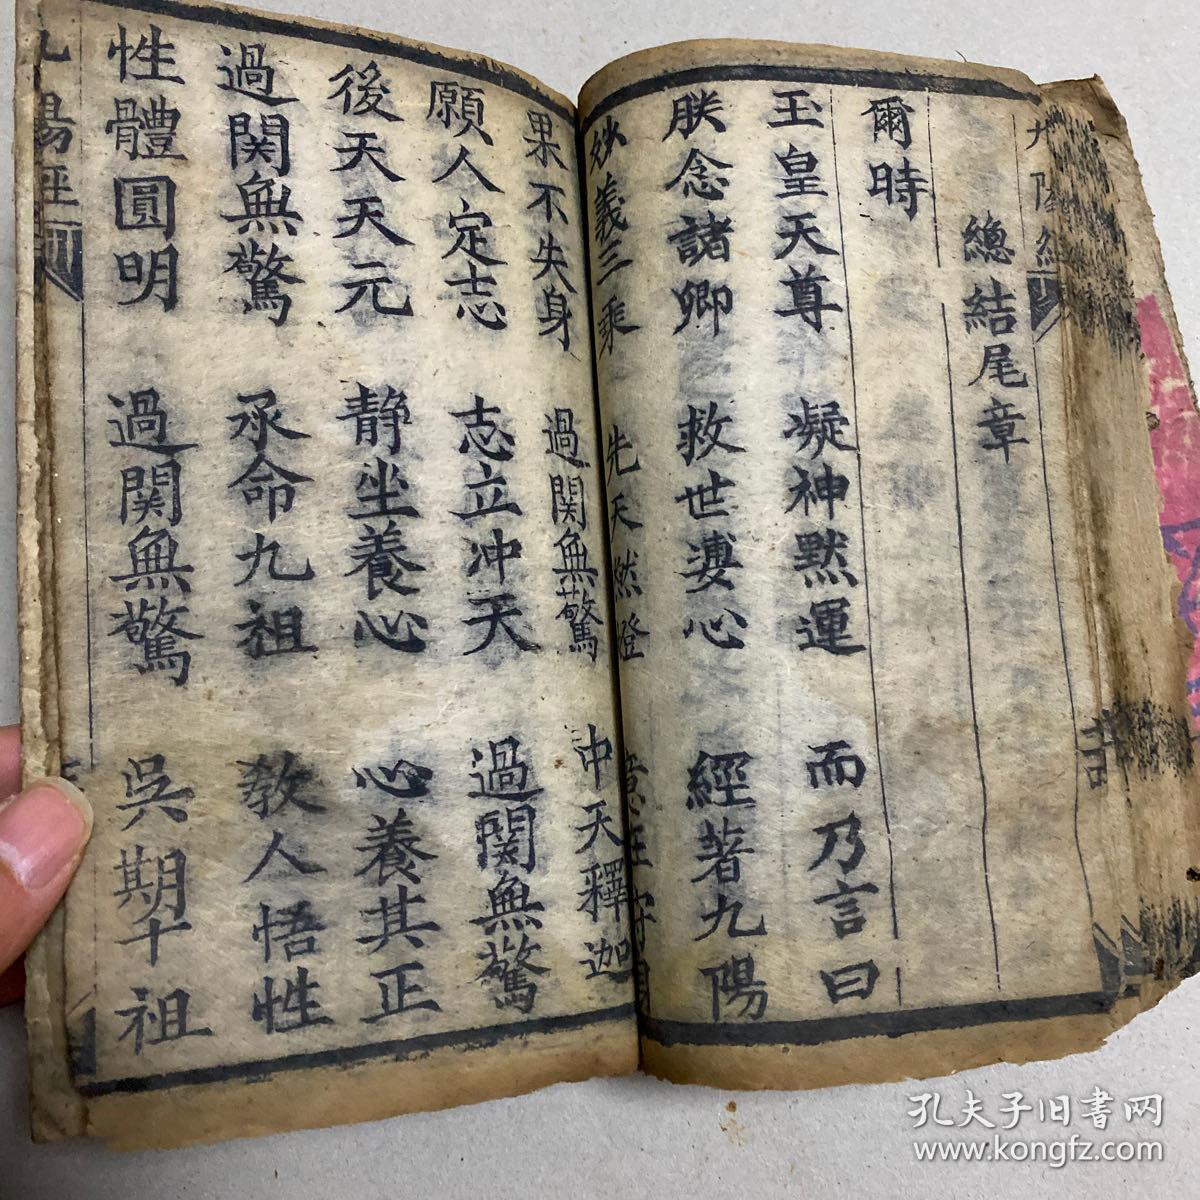 九陽經
總結尾章
爾時
玉皇天尊 凝神默運 而乃言曰
朕念諸卿 救世婆心 經著九陽
妙義三乘 先天然燈
果不失身 過関無驚 中天釋迦
願人定志 志立冲天 過関無驚
後天天元 静坐養心 心養其正
過関無驚 承命九祖 教人悟性
性體圓明 過関無驚 吳期十祖
九陽經
孔夫子旧书网
www.kongfz.com